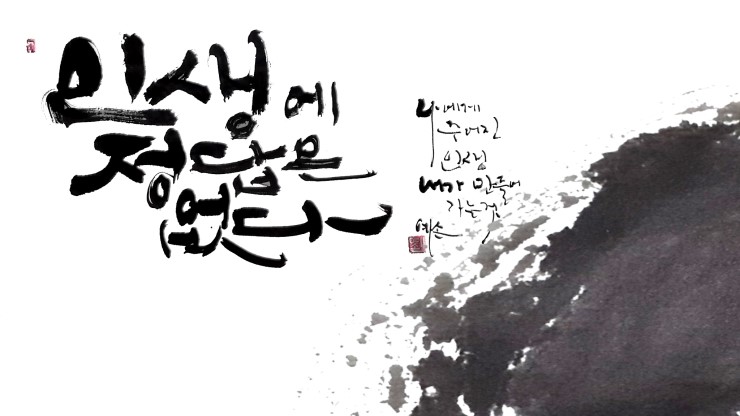 인생에
정답은
없다
나에게
주어진
인생
내가 만들어
가는것
예손